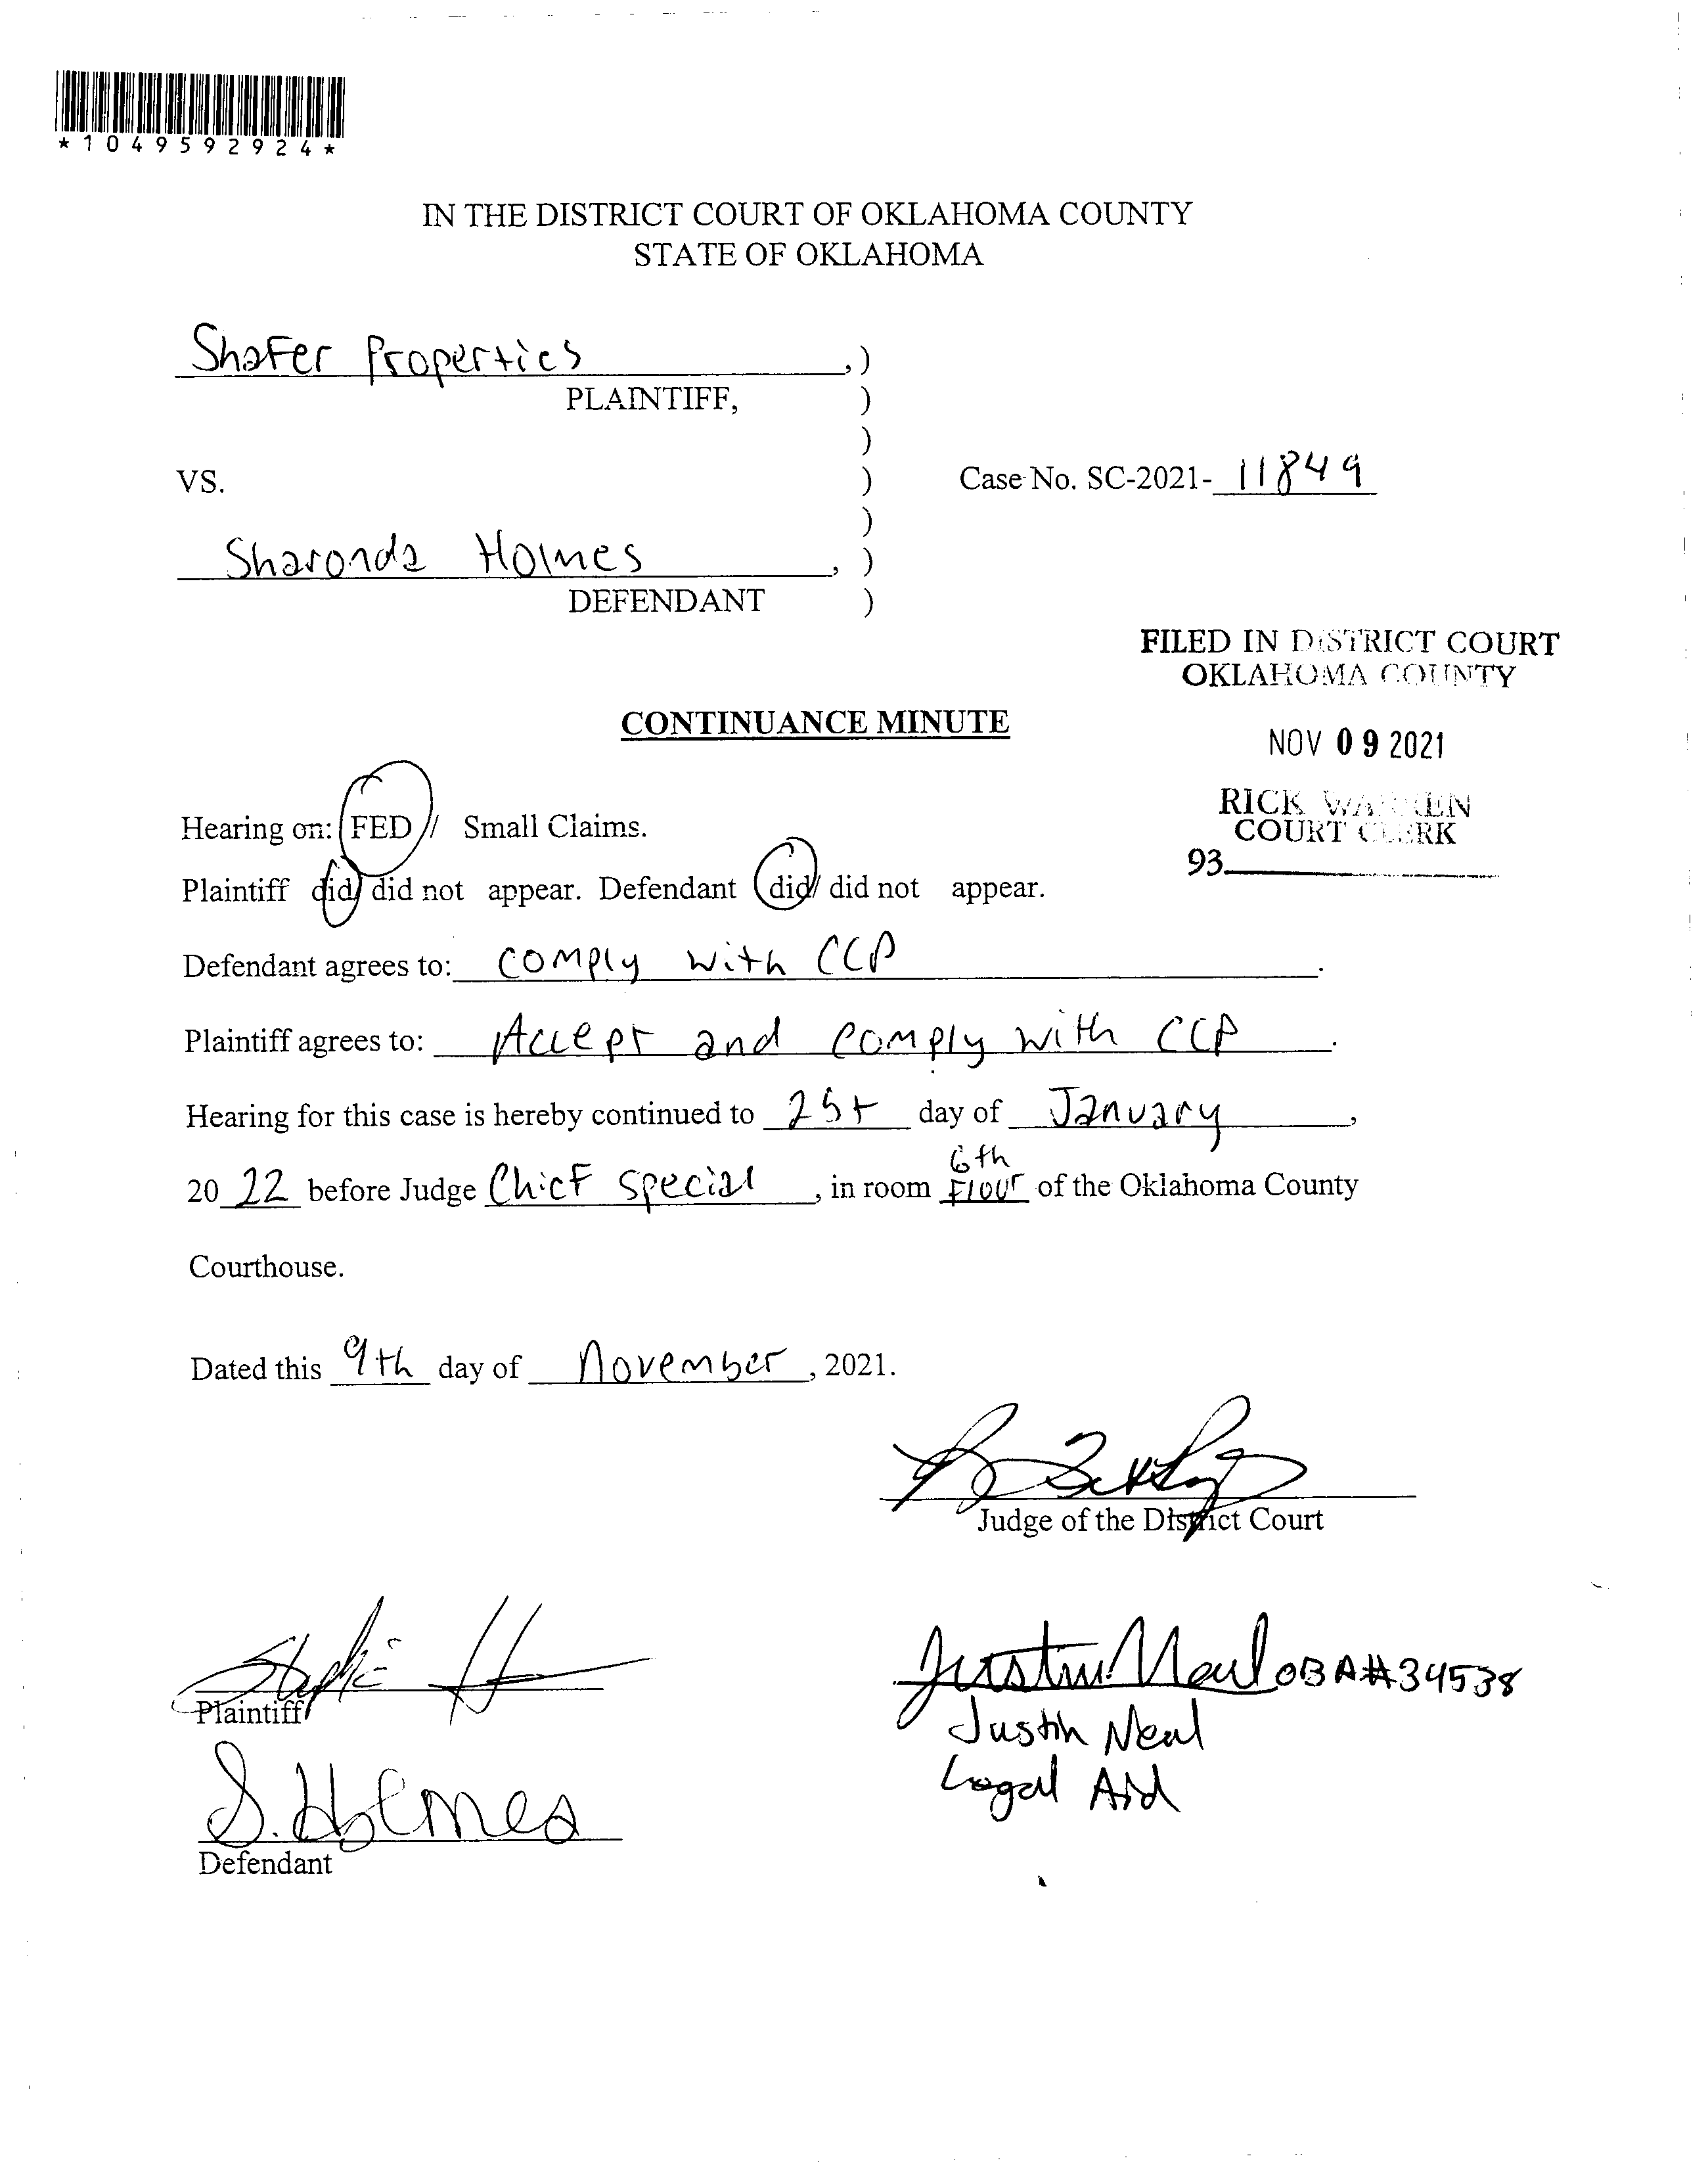 *1049592924*
IN THE DISTRICT COURT OF OKLAHOMA COUNTY
STATE OF OKLAHOMA
Shafer Properties ,)
PLAINTIFF, )
)
VS. ) Case No. SC-2021- 11849
)
Sharonda Holmes , )
DEFENDANT )
FILED IN DISTRICT COURT
OKLAHOMA COUNTY
CONTINUANCE MINUTE
NOV 09 2021
RICK WARREN
COURT CLERK
93
Hearing on: FED // Small Claims.
Plaintiff did/ did not appear. Defendant did/ did not appear.
Defendant agrees to: comply with CCP .
Plaintiff agrees to: Accept and comply with CCP .
Hearing for this case is hereby continued to 25t day of January ,
6th
20 22 before Judge Chief Special , in room Floor of the Oklahoma County
Courthouse.
Dated this 9th day of November , 2021.
Judge of the District Court
Plaintiff
Justin Neal OBA#34538
Justin Neal
Legal Aid
S. Holmes
Defendant